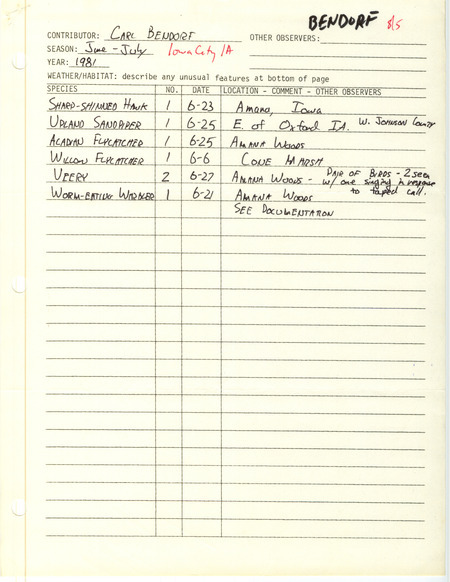 BENDORF 8/5
CONTRIBUTOR: CARL BENDORF OTHER OBSERVERS:
SEASON: June - July Iowa City IA
YEAR: 1981
WEATHER/HABITAT: describe any unusual features at bottom of page
SPECIES NO. DATE LOCATION - COMMENT - OTHER OBSERVERS
SHARP-SHINNED HAWK 1 6-23 Amana, Iowa
UPLAND SANDPIPER 1 6-25 E. of Oxford IA. W. JOHNSON COUNTY
ACADIAN FLYCATCHER 1 6-25 AMANA WOODS
WILLOW FLYCATCHER 1 6-6 CONE MARSH
VEERY 2 6-27 AMANA WOODS - PAIR OF BIRDS - 2 seen
w/ one singing in response
to taped call.
WORM-EATING WARBLER 1 6-21 AMANA WOODS
SEE DOCUMENTATION